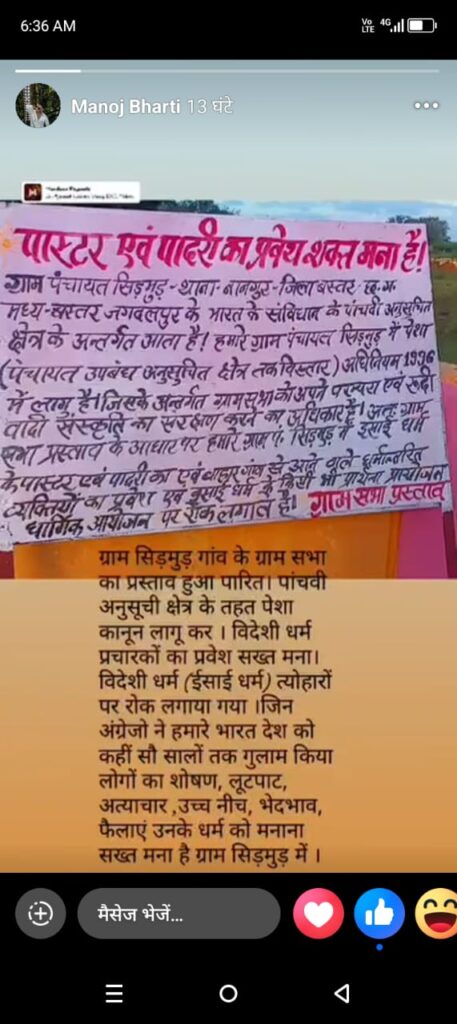 6:36 AM
Vo LTE 4G
Manoj Bharti 13 घंटे
पास्टर एवं पादरी का प्रवेश शक्त मना है!
ग्राम पंचायत सिड़मुड़ - थाना - नानगुर - जिला बस्तर - छ.ग.
मध्य-बस्तर जगदलपुर के भारत के संविधान के पांचवी अनुसूचित
क्षेत्र के अन्तर्गत आता है। हमारे ग्राम पंचायत सिड़मुड़ में पेशा
(पंचायत उपबंध अनुसूचित क्षेत्र तक विस्तार) अधिनियम 1996
में लागू है। जिसके अन्तर्गत ग्रामसभा को अपने परम्परा एवं रूढ़ी
वादी संस्कृति का संरक्षण करने का अधिकार है। अतः ग्राम
सभा प्रस्ताव के आधार पर हमारे ग्राम पं. सिड़मुड़ में ईसाई धर्म
के पास्टर एवं पादरी का एवं बाहर गांव से आने वाले धर्मान्तरित
व्यक्तियों का प्रवेश एवं ईसाई धर्म के किसी भी प्रार्थना प्रायोजन
धार्मिक आयोजन पर रोक लगाते है। ग्राम सभा प्रस्ताव
ग्राम सिड़मुड़ गांव के ग्राम सभा
का प्रस्ताव हुआ पारित। पांचवी
अनुसूची क्षेत्र के तहत पेशा
कानून लागू कर । विदेशी धर्म
प्रचारकों का प्रवेश सख्त मना।
विदेशी धर्म (ईसाई धर्म) त्योहारों
पर रोक लगाया गया ।जिन
अंग्रेजो ने हमारे भारत देश को
कहीं सौ सालों तक गुलाम किया
लोगों का शोषण, लूटपाट,
अत्याचार ,उच्च नीच, भेदभाव,
फैलाएं उनके धर्म को मनाना
सख्त मना है ग्राम सिड़मुड़ में ।
मैसेज भेजें...